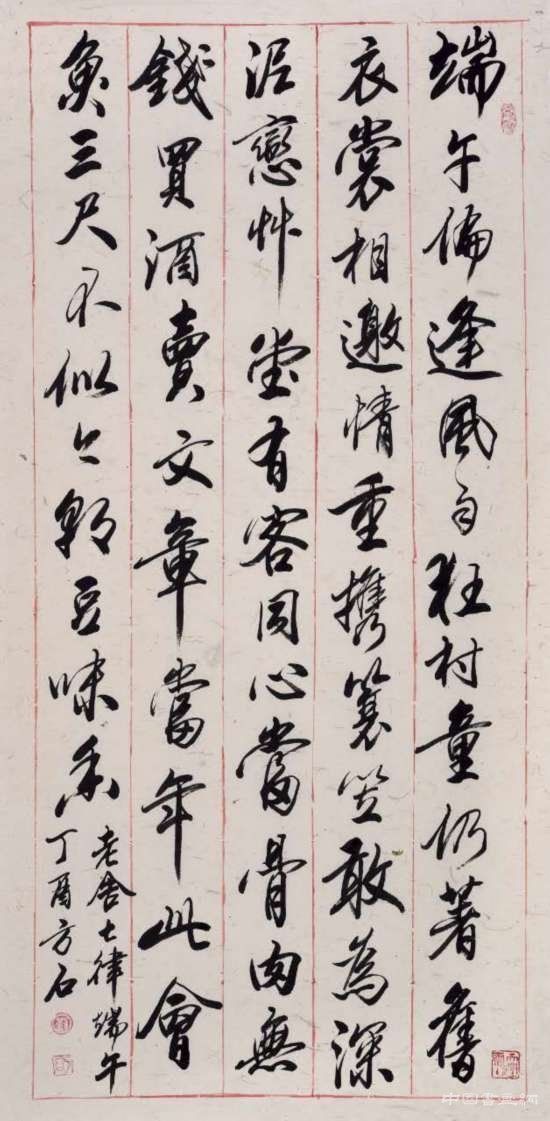 端午偏逢風雨狂村童仍著舊
衣裳相邀情重攜蓑笠敢為深
泥戀艸堂有客同心當骨肉無
錢買酒賣文章當年此會
魚三尺不似今朝豆味香
老舍七律端午
丁酉方石